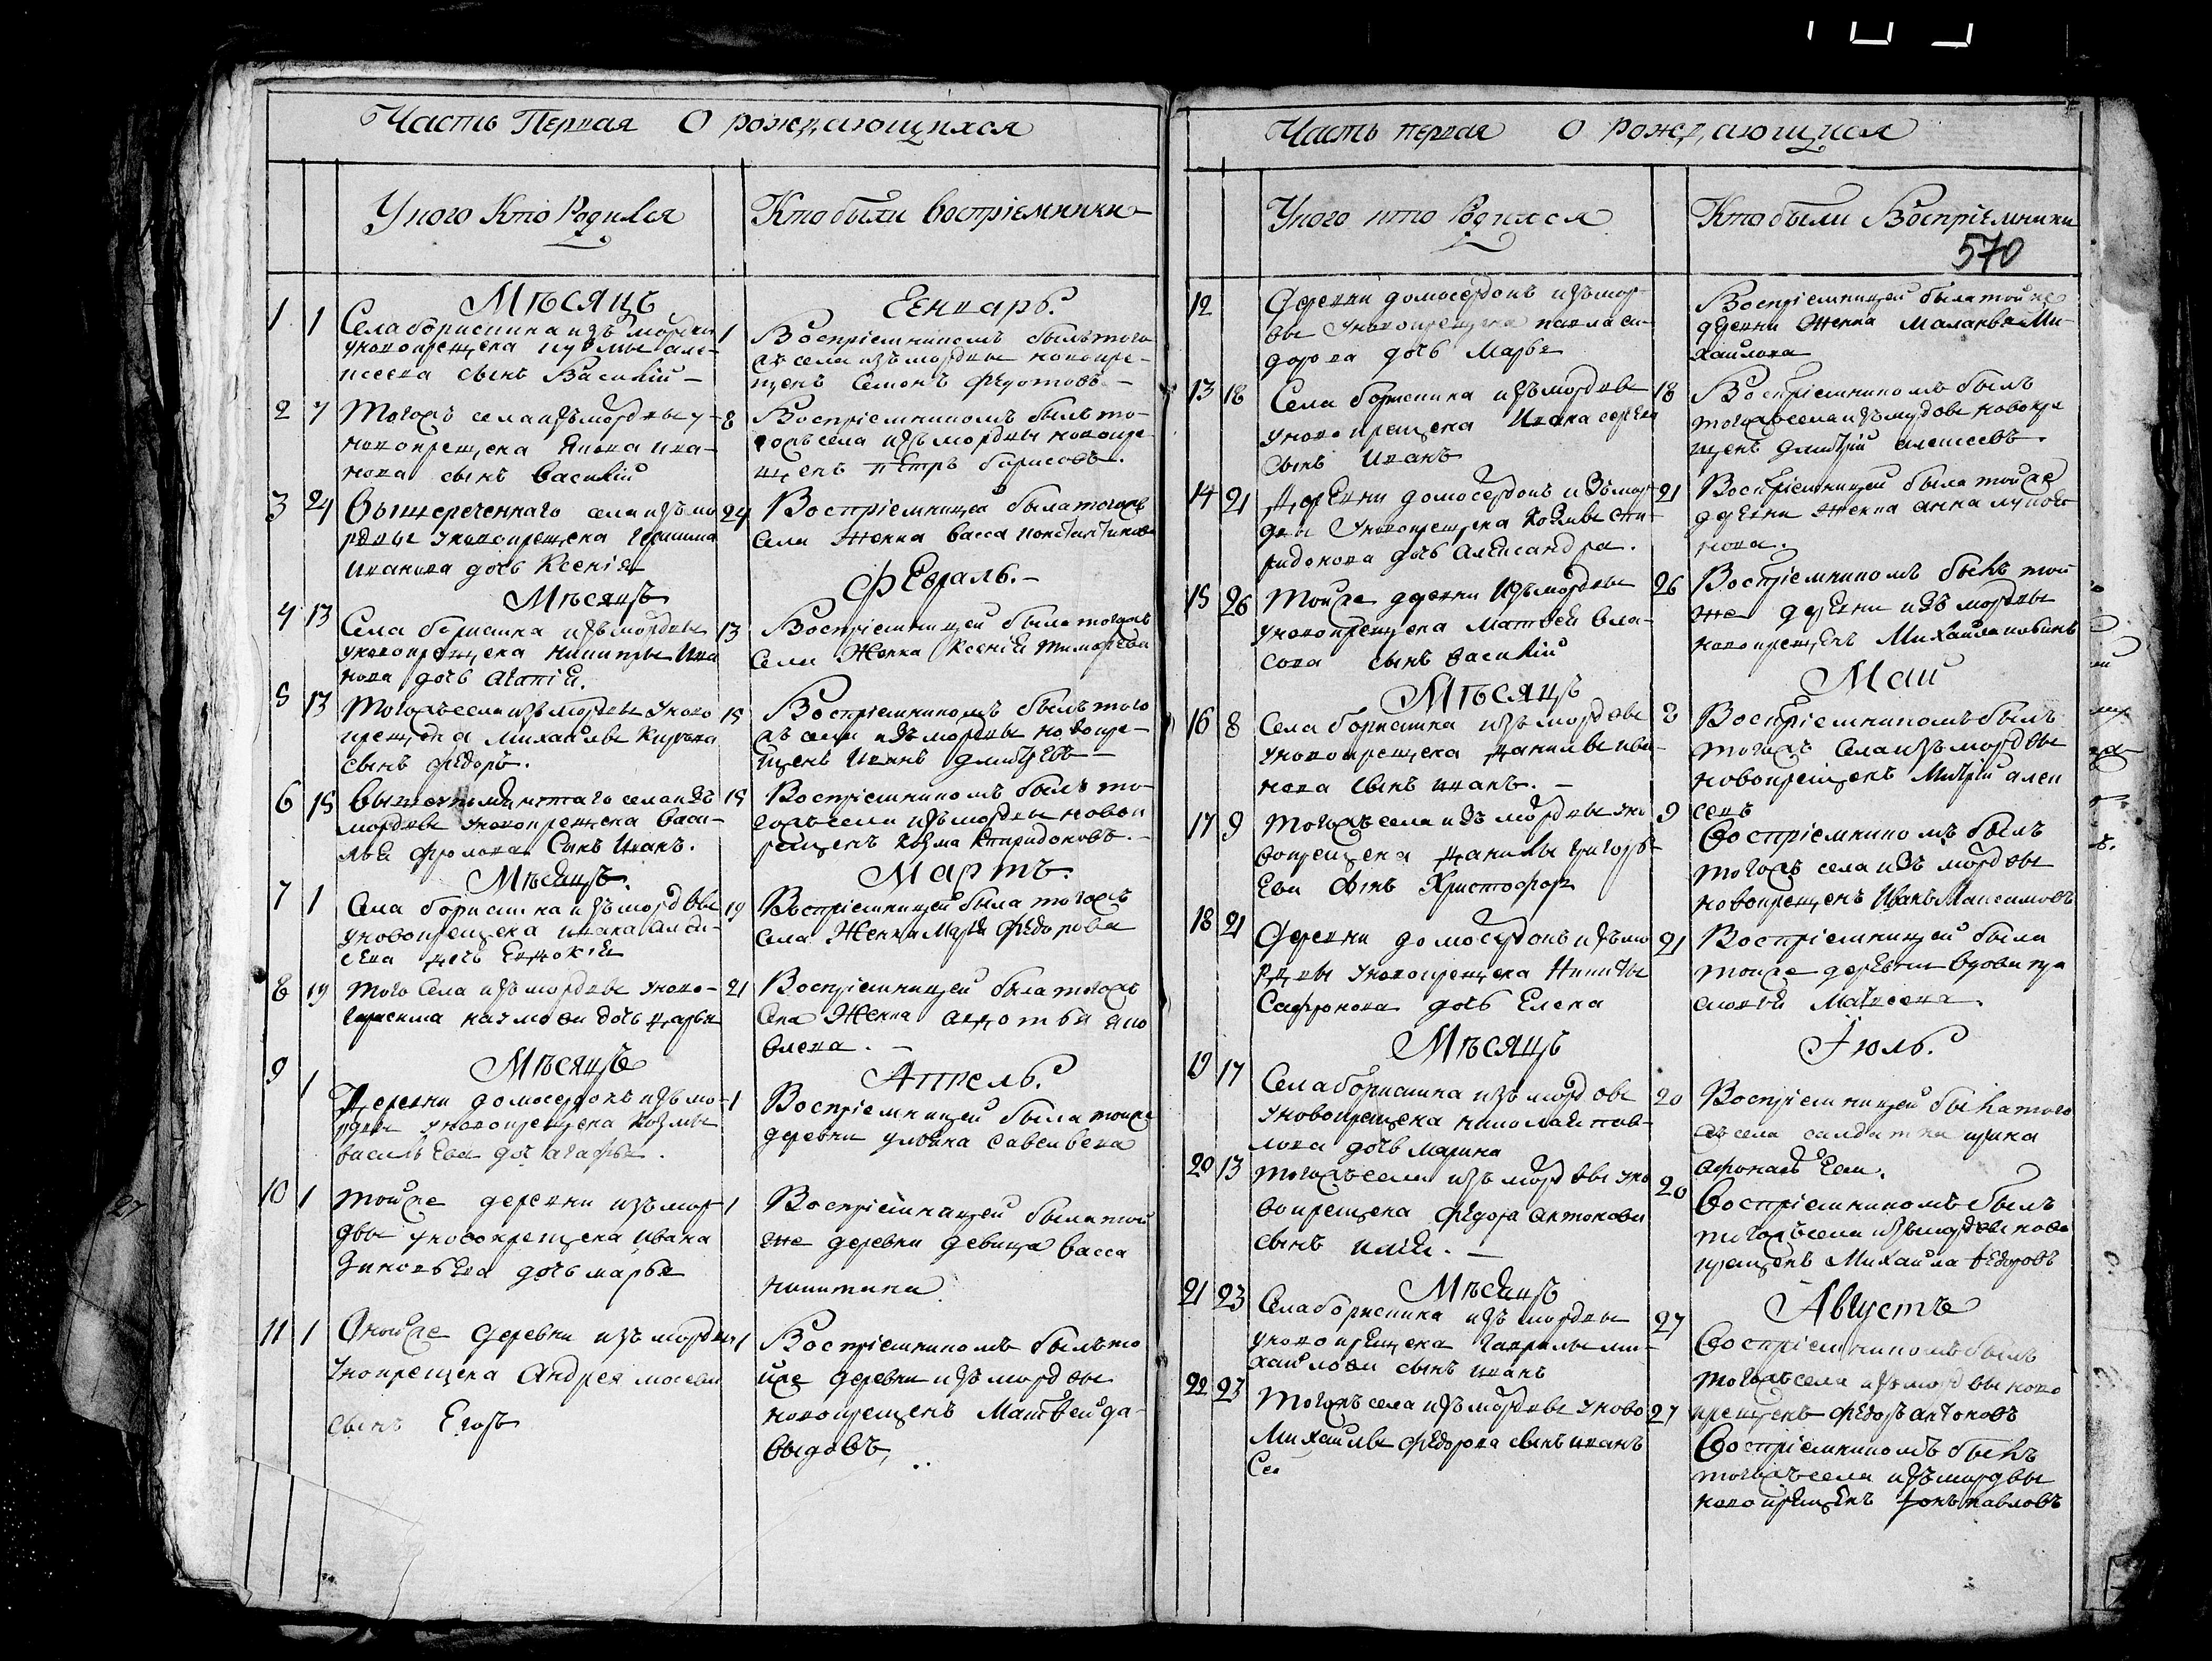 Часть Первая О рождающихся
У кого Кто Родился
Кто были восприемники
Мѣсяцъ
Генварь.
1 1 Села борисшина изъ мордвы
у новокрещена кузмы але-
ксеева сынъ Василий —
1 Восприемникомъ былъ того
жъ села изъ мордвы новокре-
щенъ Семенъ Федотовъ —
2 7 Тогожъ села изъ мордвы у
новокрещена Якова Ива-
нова сынъ Василий
8 Восприемникомъ былъ то-
гожъ села изъ мордвы новокре-
щенъ Петръ борисовъ.
3 24 Вышереченнаго села изъ мо
рдвы у новокрещена Герасима
Иванова дочь Ксения
24 Восприемницей была тогожъ
села Женка Васса Константинова
Мѣсяцъ
Февраль. —
4 13 Села борисшина изъ мордвы
у новокрещена Никиты Ива
нова дочь Агапия.
13 Восприемницей была тогожъ
села Женка Ксения Тимофеева
5 13 Тогожъ села изъ мордвы у ново
крещена Михайлы Карпова
сынъ Федоръ.
15 Восприемникомъ былъ того
жъ села изъ мордвы новокре-
щенъ Иванъ Дмитревъ —
6 15 Вышепомянутаго села изъ
мордвы у новокрещена Васи-
лья Фролова Сынъ Иванъ.
15 Восприемникомъ былъ то-
гожъ села изъ мордвы новок
рещенъ Козма Спиридоновъ. —
Мѣсяцъ.
Мартъ.
7 1 Села борисшина изъ мордвы
у новокрещена Ивана Алек-
сеева дочь Евдокия
19 Восприемницей была тогожъ
села Женка Марья Федорова
8 19 Того Села изъ мордвы у ново-
Герасима дочь Дарья
21 Восприемницей была тогожъ
Села Женка Авдотья Яко
влева. —
Мѣсяцъ
Апрель.
9 1 Деревни домосердокъ изъ мо-
рдвы у новокрещена Козмы
васильева дочь агафья.
1 Восприемницей была тойже
деревни ульяна савельева
10 1 Тойже деревни изъ мор-
двы у новокрещена Ивана
Зиновьева дочь марья
1 Восприемницей была той
же деревни девица Васса
никитина
11 1 Онойже деревни изъ мордвы
у нокрещена Андрея мосева
сынъ Егоръ
1 Восприемникомъ былъ то
йже деревни изъ мордвы
новокрещенъ Матвей да-
выдовъ,
Часть первая О рождающися
У кого кто Родился
Кто были Восприемники
570
12 Деревни домосердокъ изъ мор
вы у новокрещена павла си-
дорова дочь Марья
Восприемницей была тойже
деревни Женка Маланья Ми-
хайлова
13 18 Села борисшина изъ мордвы
у новокрещена Ивана сергеева
сынъ Иванъ
18 Восприемникомъ былъ
тогожъ села изъ мрдовы новокре
щенъ Дмитрий алексеевъ.
14 21 Деревни домосердокъ изъ мор
двы у новокрещена Козмы спи-
ридонова дочь Александра.
21 Восприемницей была тойже
деревни женка анна лукоя-
нова.
15 26 Тойже деревни изъ мордвы
у новокрещена Матвея Вла-
сова сынъ Василий
26 Восприемникомъ былъ той
же деревни изъ мордвы
новокрещенъ Михайла
Мѣсяцъ
Май
16 8 Села борисшина изъ мордвы
у новокрещена данилы ива-
нова сынъ иванъ. —
8 Восприемникомъ былъ
тогожъ села изъ мордвы
новокрещенъ Митрий алек
севъ
17 9 Тогожъ села изъ мордвы у но
вокрещена данилы григорь-
ева сынъ Христофоръ
9 Восприемникомъ былъ
тогожъ села изъ мордвы
новокрещенъ Иванъ Максимовъ
18 21 Деревни домосердокъ изъ мо
рдвы у новокрещена Никиты
Сафронова дочь Елена
21 Восприемницей была
тойже деревни вдова пра
сковья Матвеева.
Мѣсяцъ
Июль.
19 17 Села борисшина изъ мордвы
у новокрещена николая пав-
лова дочь марина
20 Восприемницей была того
жъ села салдатка ирина
афонасьева.
20 13 Тогожъ села изъ мордвы у но
вокрещена Федора антонова
сынъ илия. —
20 Восприемникомъ былъ
тогожъ села изъ мордвы ново
крещенъ Михайла Федоровъ
Мѣсяцъ
Августъ
21 23 Села борисшина изъ мордвы
у новокрещена Гаврилы ми-
хайлова сынъ иванъ
27 Восприемникомъ былъ
тогожъ села изъ мордвы ново
крещенъ Федоръ антоновъ
22 23 Тогожъ села изъ мордвы у ново
Михайлы Федорова сынъ иванъ
Се
27 Восприемникомъ былъ
тогожъ села изъ мордвы
новокрещенъ павловъ